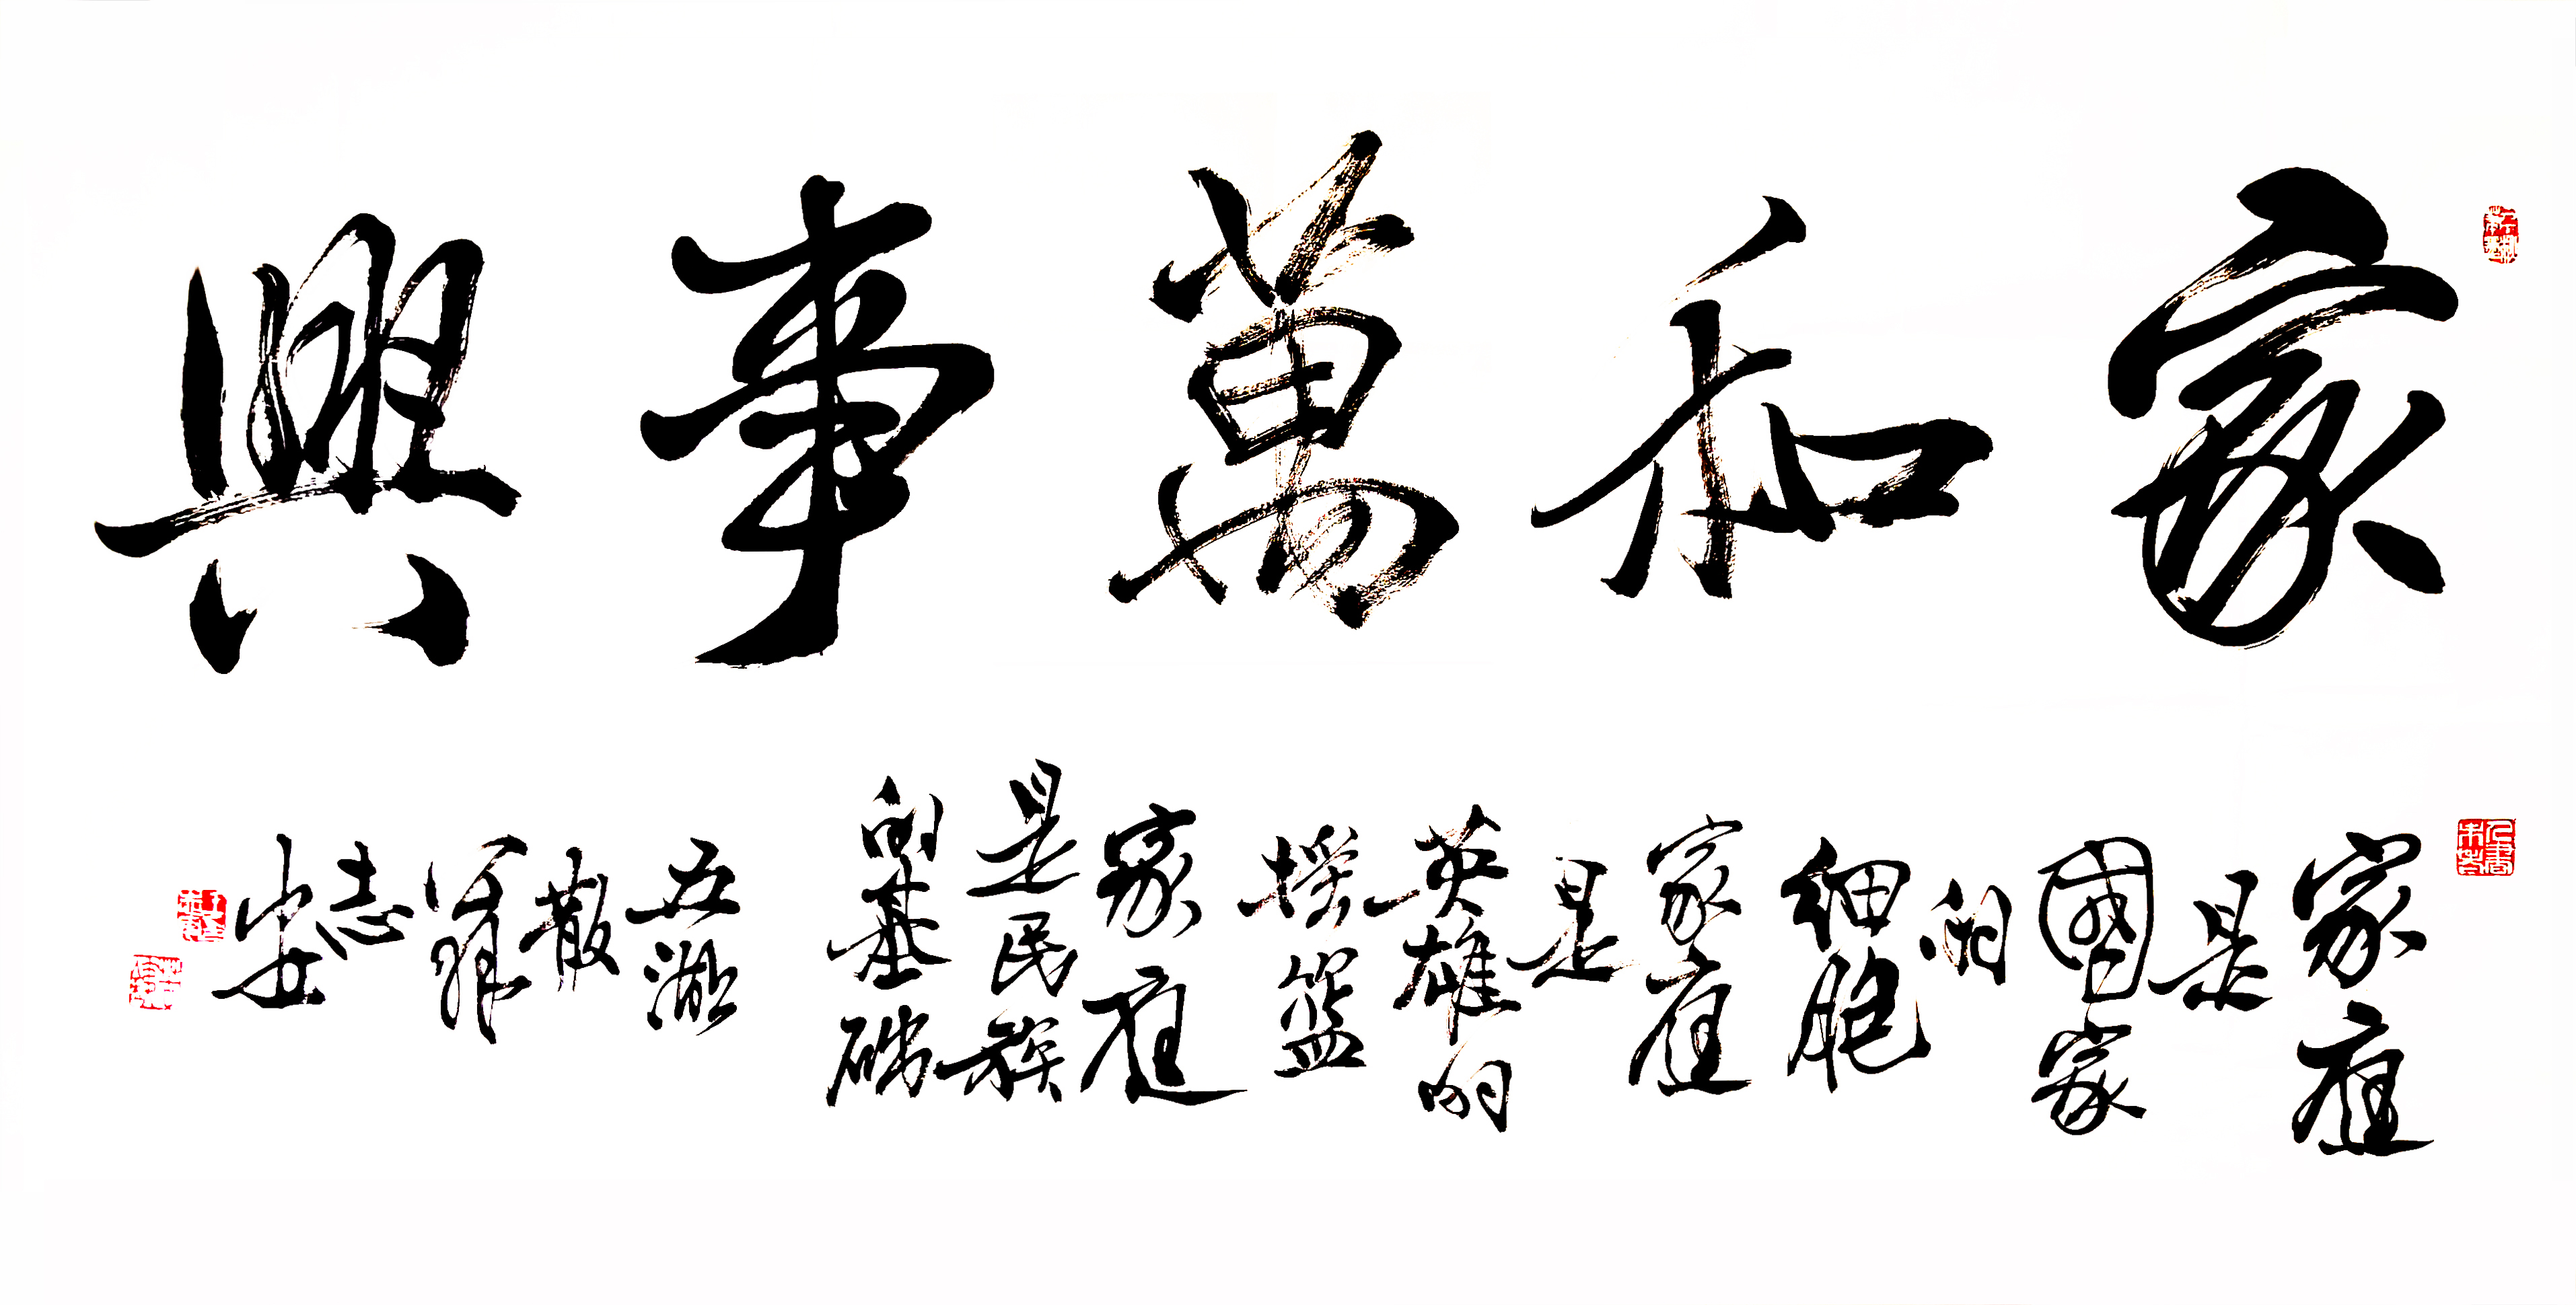 家和萬事興
家庭
是
國家
的
細胞
家庭
是
英雄的
搖籃
家庭
是民族
的基礎
五湖
散
志